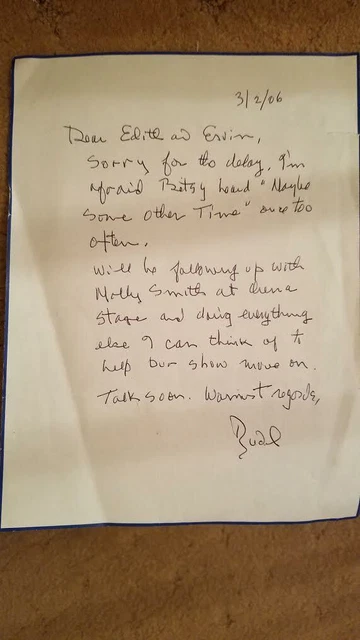 3/2/06
Dear Edith and Ervin,
Sorry for the delay. I'm
afraid Betsy heard "Maybe
Some Other Time" once too
often.
Will be following up with
Molly Smith at Arena
Stage and doing everything
else I can think of to
help our show move on.
Talk soon. Warmest regards,